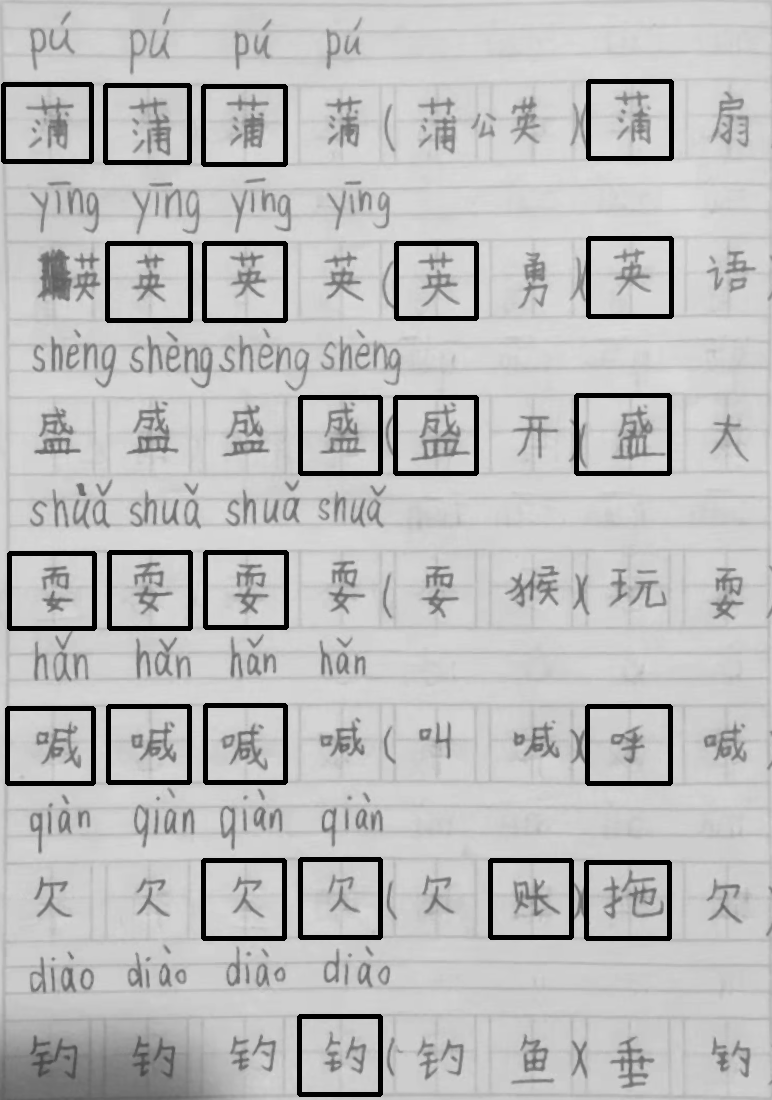 pú pú pú pú
蒲 蒲 蒲 蒲(蒲公英)(蒲扇
yīng yīng yīng yīng
英 英 英 英(英勇)(英语)
shèng shèng shèng shèng
盛 盛 盛 盛(盛开)(盛大
shuǎ shuǎ shuǎ shuǎ
耍 耍 耍 耍(耍猴)(玩耍)
hǎn hǎn hǎn hǎn
喊 喊 喊 喊(叫喊)(呼喊)
qiàn qiàn qiàn qiàn
欠 欠 欠 欠(欠账)(拖欠)
diào diào diào diào
钓 钓 钓 钓(钓鱼)(垂钓)